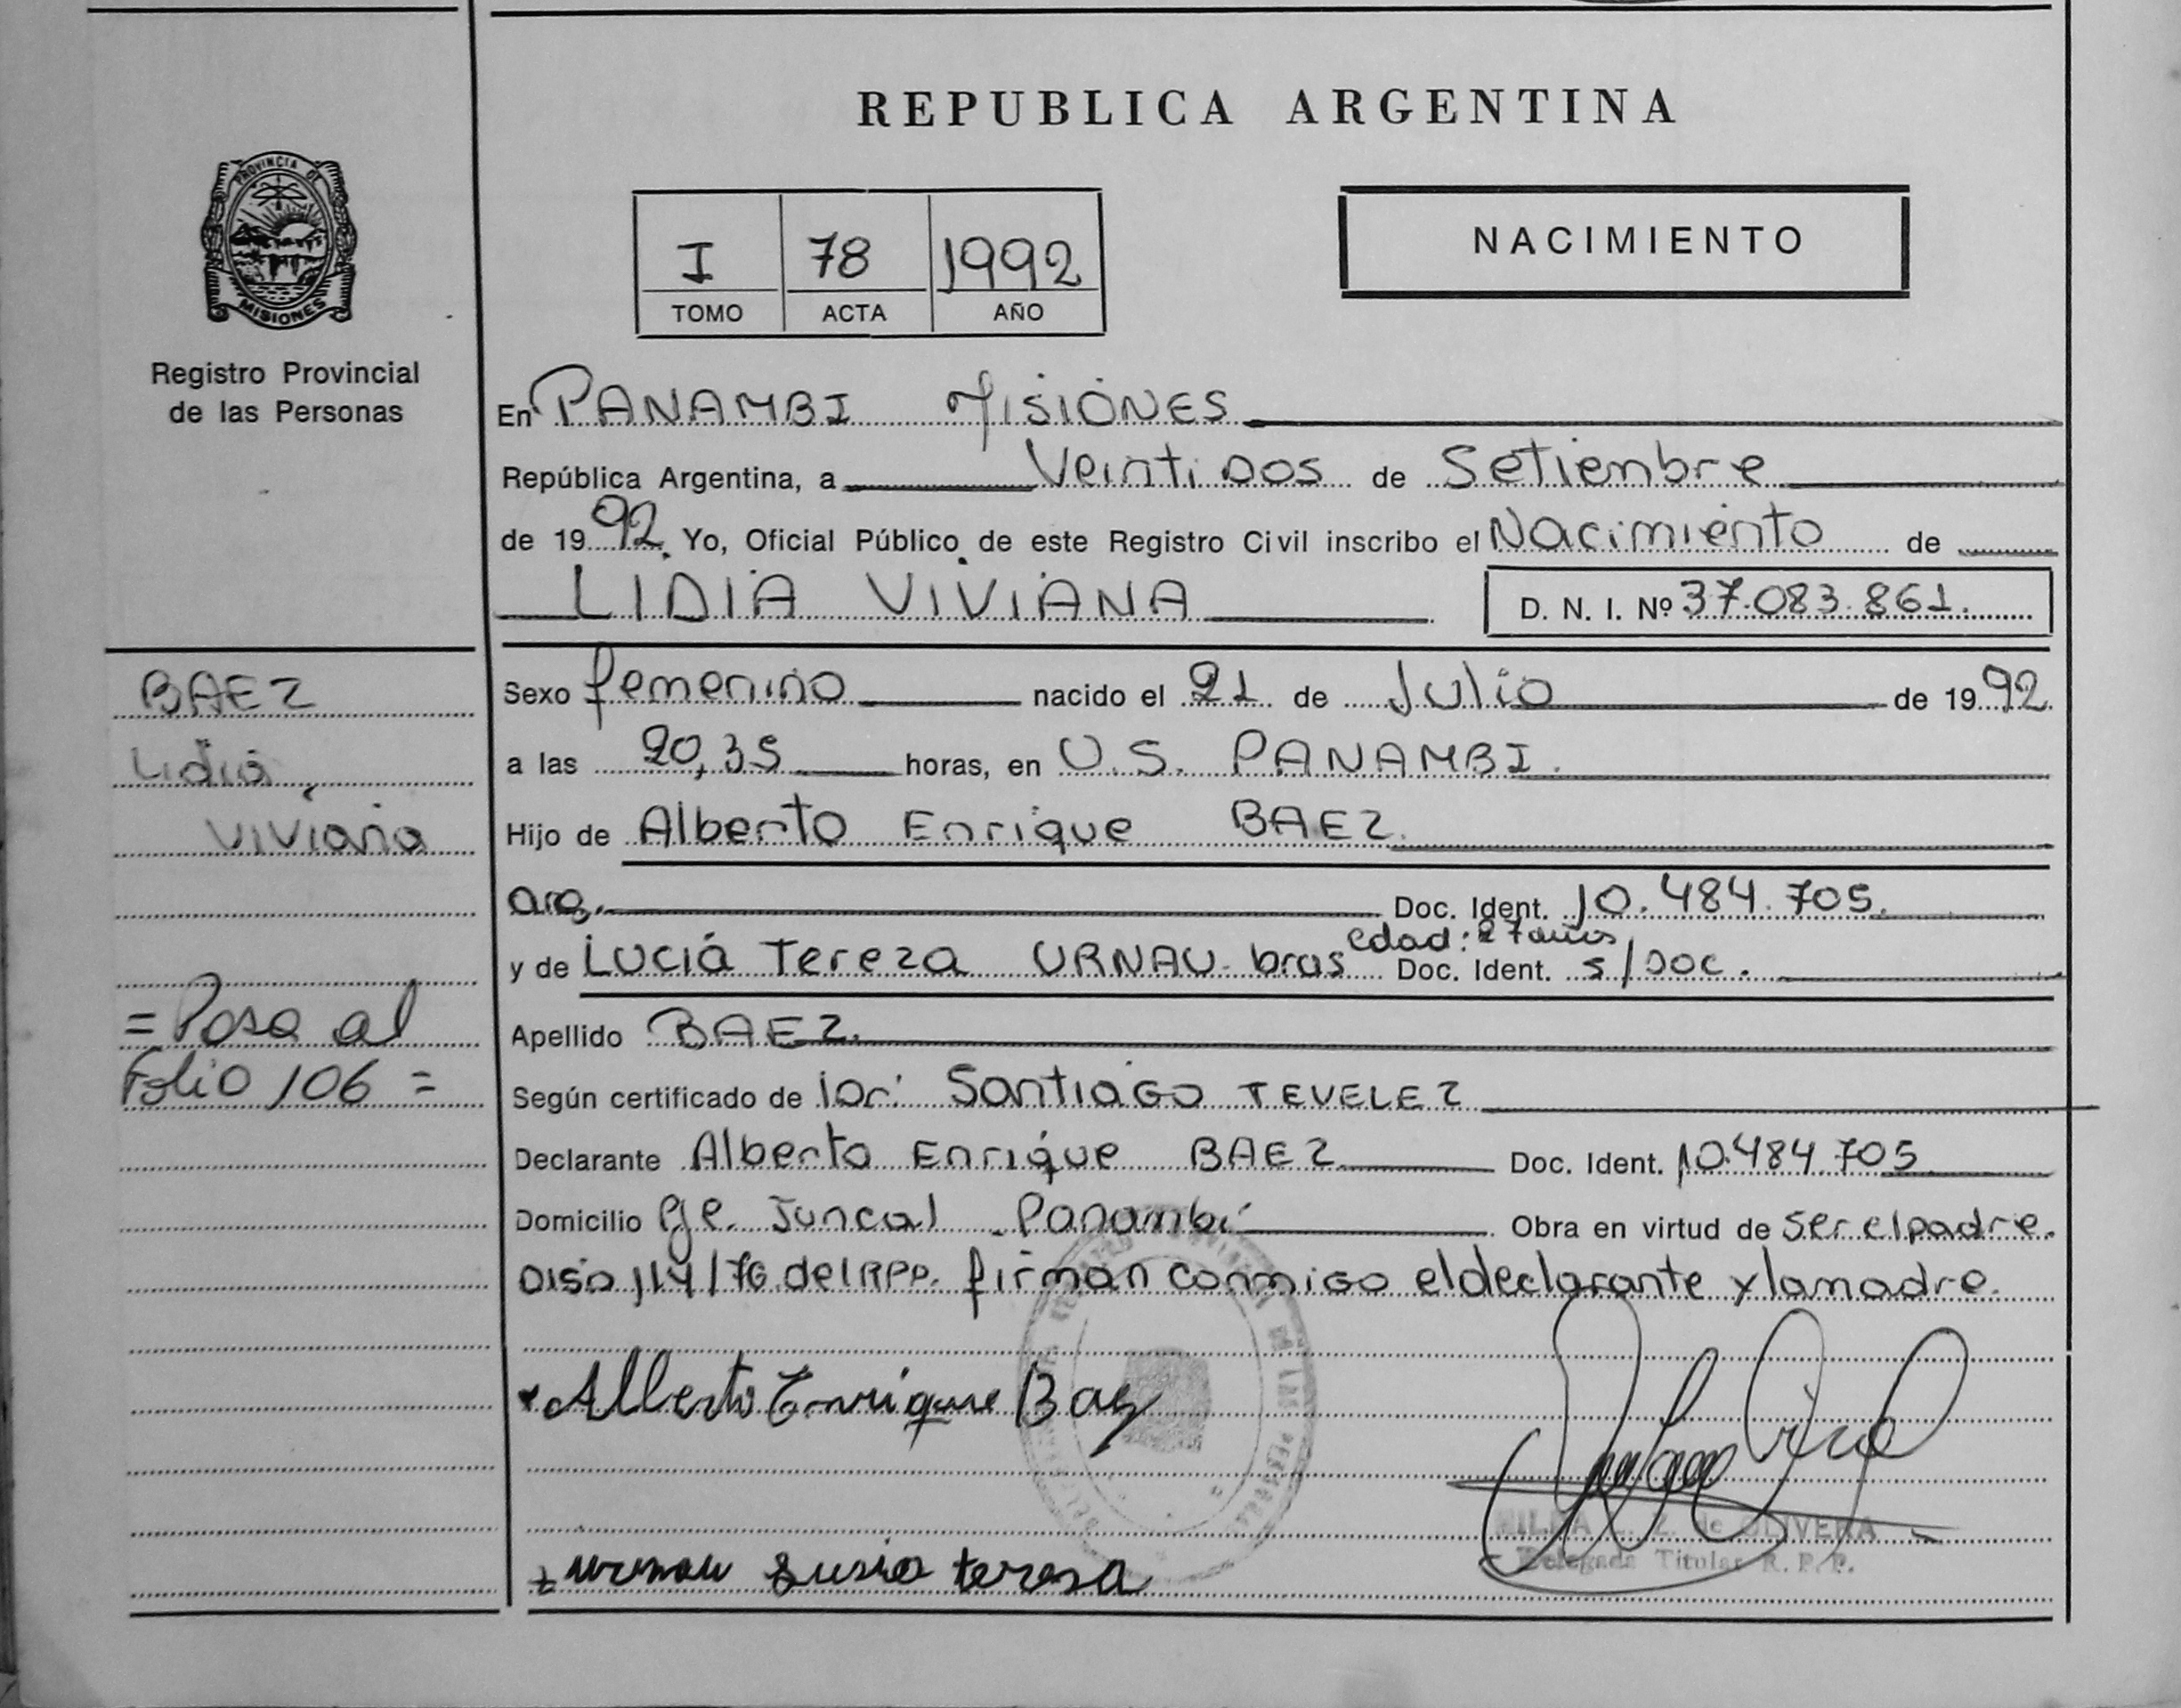 REPUBLICA ARGENTINA
PROVINCIA DE
MISIONES
Registro Provincial
de las Personas
I 78 1992
TOMO ACTA AÑO
NACIMIENTO
En PANAMBI MISIONES
República Argentina, a Veinti Dos de Setiembre
de 1992. Yo, Oficial Público de este Registro Civil inscribo el Nacimiento de
LIDIA VIVIANA
D. N. I. Nº 37.083.861.
BAEZ
Lidia
Viviana
Sexo femenino nacido el 21 de Julio de 1992.
a las 20,35 horas, en U.S. PANAMBI.
Hijo de Alberto Enrique BAEZ.
arg. Doc. Ident. 10.484.705.
edad: 27 años
y de Lucia Tereza URNAU bras Doc. Ident. s/Doc.
= Pasa al
Folio 106 =
Apellido BAEZ.
Según certificado de Santiago TEVELEZ
Declarante Alberto Enrique BAEZ Doc. Ident. 10.484.705
Domicilio Pje. Juncal Panambí Obra en virtud de ser el padre.
114/76 del RPP. firman conmigo el declarante y la madre.
Alberto Enrique Baez
DE OLIVERA
Delegada Titular R. P. P.
urnau Lusia teresa